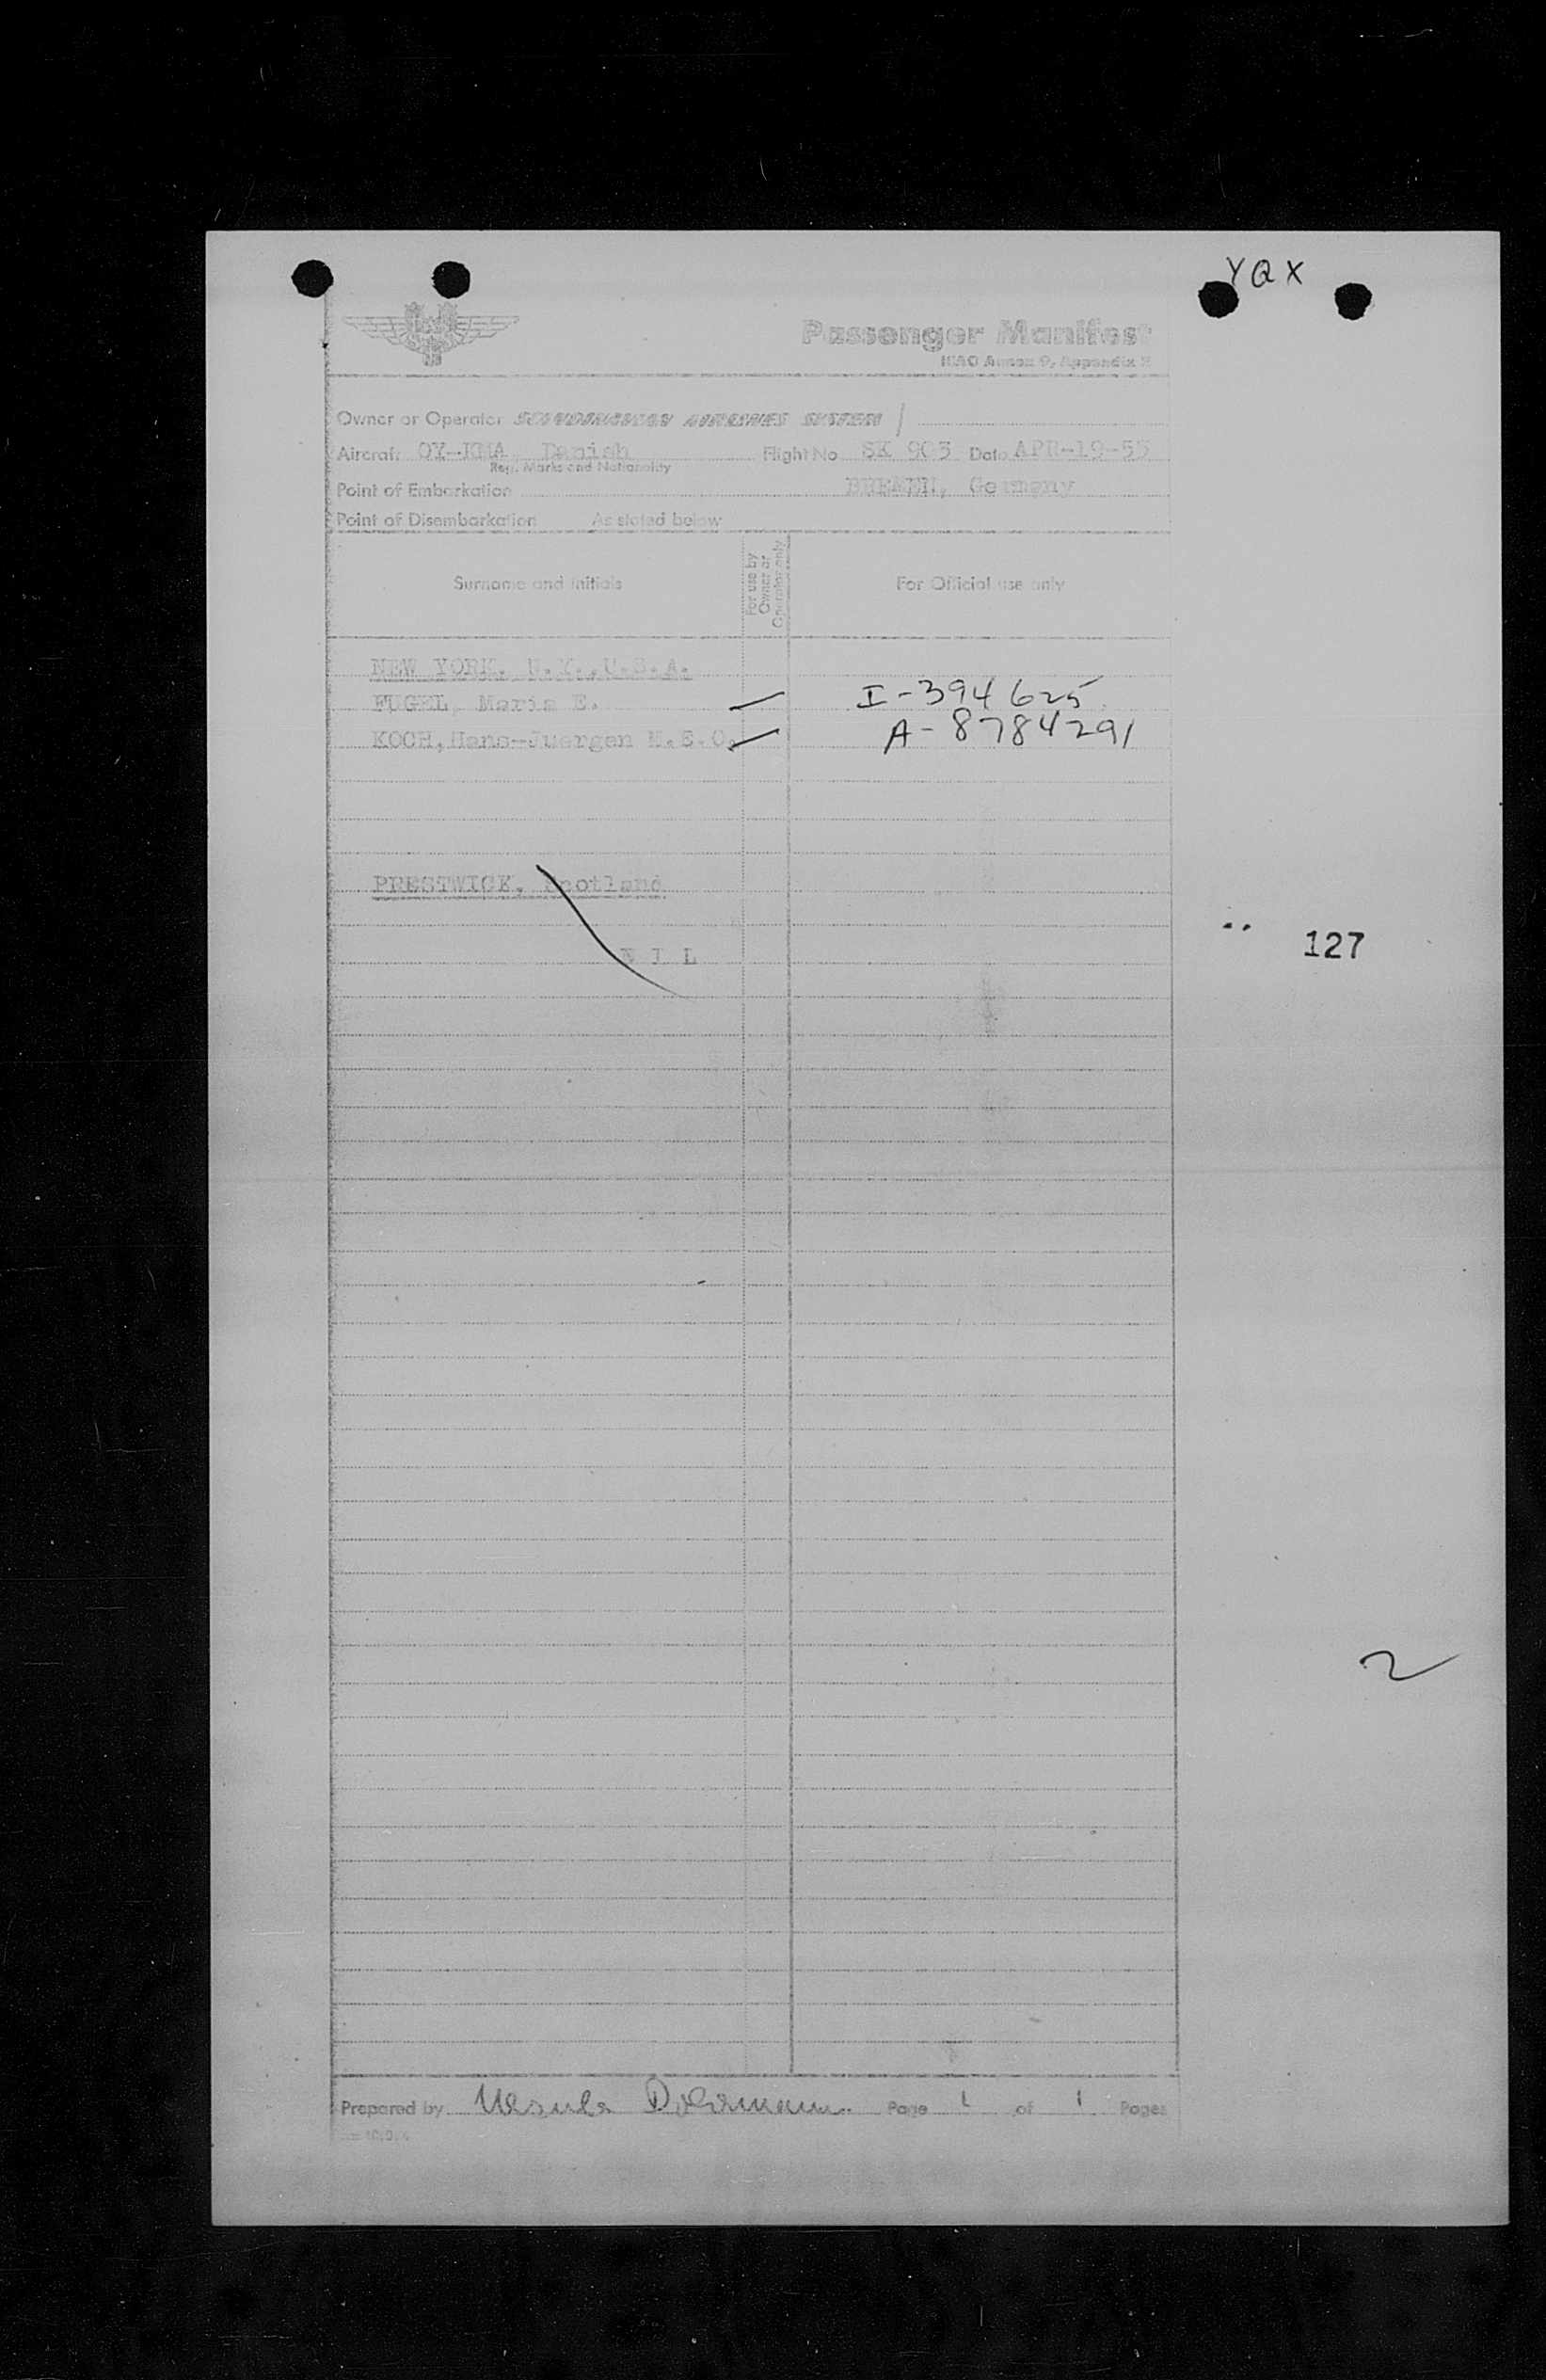 YQX
Passenger Manifest
ICAO Annex 9, Appendix
Owner or Operator SCANDINAVIAN AIRLINES SYSTEM
Aircraft OY-KMA Danish Flight No. SK 903 Date APR-19-55
Reg. Marks and Nationality
Point of Embarkation BREMEN, Germany
Point of Disembarkation As stated below
Surname and initials
For use by Owner or Operator only
For Official use only
NEW YORK. N.Y.,U.S.A.
FUGEL, Maria E. I-394625
KOCH,Hans-Juergen M.E.O. A-8784291
PRESTWICK, Scotland
127
N I L
2
Prepared by Ursula Page 1 of 1 Pages